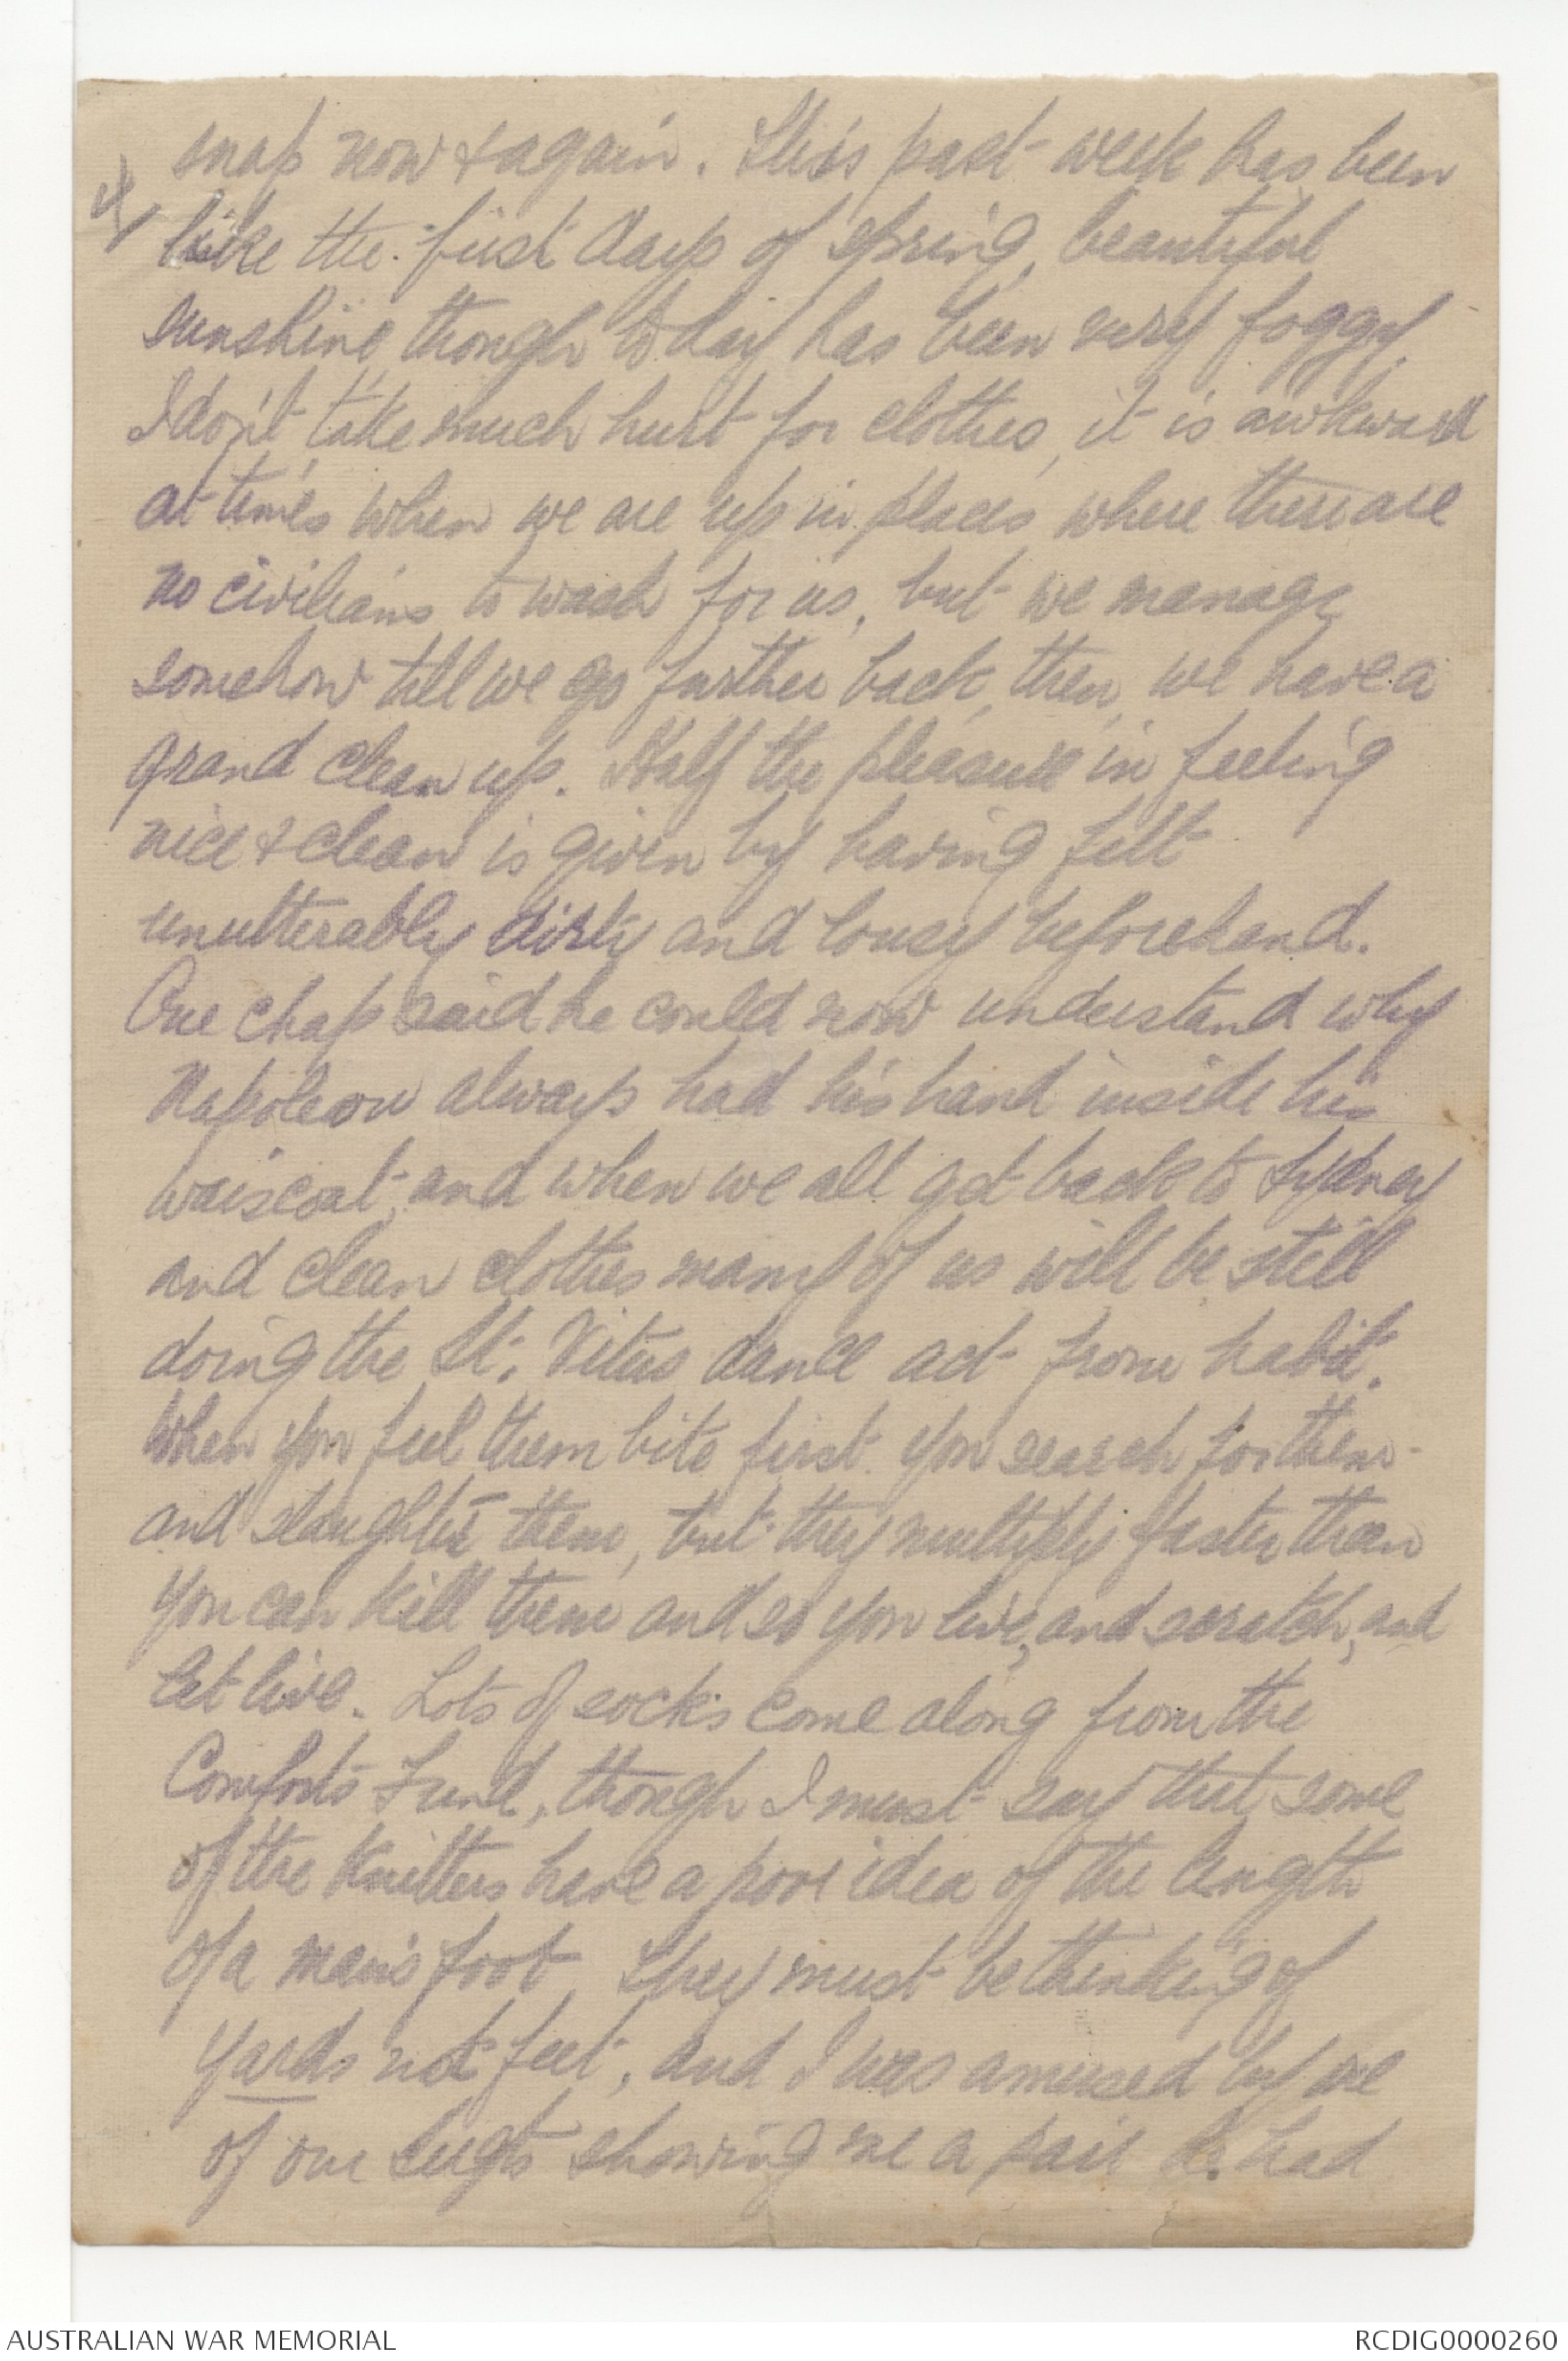 snap now & again. This past week has been
like the first days of spring, beautiful
sunshine, though today has been very foggy.
I don't take much hurt for clothes, it is awkward
at times when we are up in places where there are
no civilians to wash for us, but we manage
somehow till we go further back, then, we have a
grand clean up. Half the pleasure in feeling
nice & clean is given by having felt
unutterably dirty and lousy beforehand.
One chap said he could now understand why
Napoleon always had his hand inside his
waiscoat, and when we all get back to Sydney
and clean clothes many of us will be still
doing the St. Vitus dance act from habit.
When you feel them bite first you search for them
and slaughter them, but they multiply faster than
you can kill them and so you live, and scratch, and
let live. Lots of socks come along from the
Comforts Fund, though I must say that some
of the knitters have a poor idea of the length
of a man's foot. They must be thinking of
yards not feet, and I was amused by one
of our sergts showing me a pair he had
AUSTRALIAN WAR MEMORIAL
RCDIG0000260